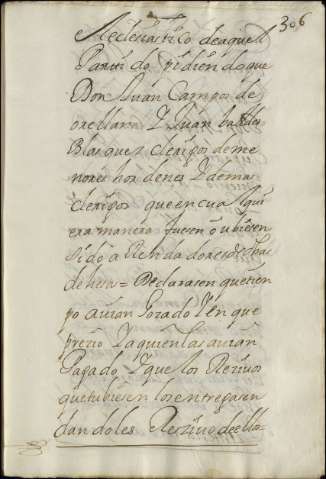 306
Ecclesiastico de aquel
Partido pidiendo que
Don Juan Campos de
orellana Y Juan
Blasquez clerigos de me
nores hordenes Y demas
clerigos que en cualqui
era manera fuesen o ubiesen
sido arrendadores de
dehesa = Declarasen que tiem
po avian gozado Y en que
precio Y a quien las avian
Pagado Y que los Rezivos
que tubiesen los entregasen
dandoles Rezivo de ello